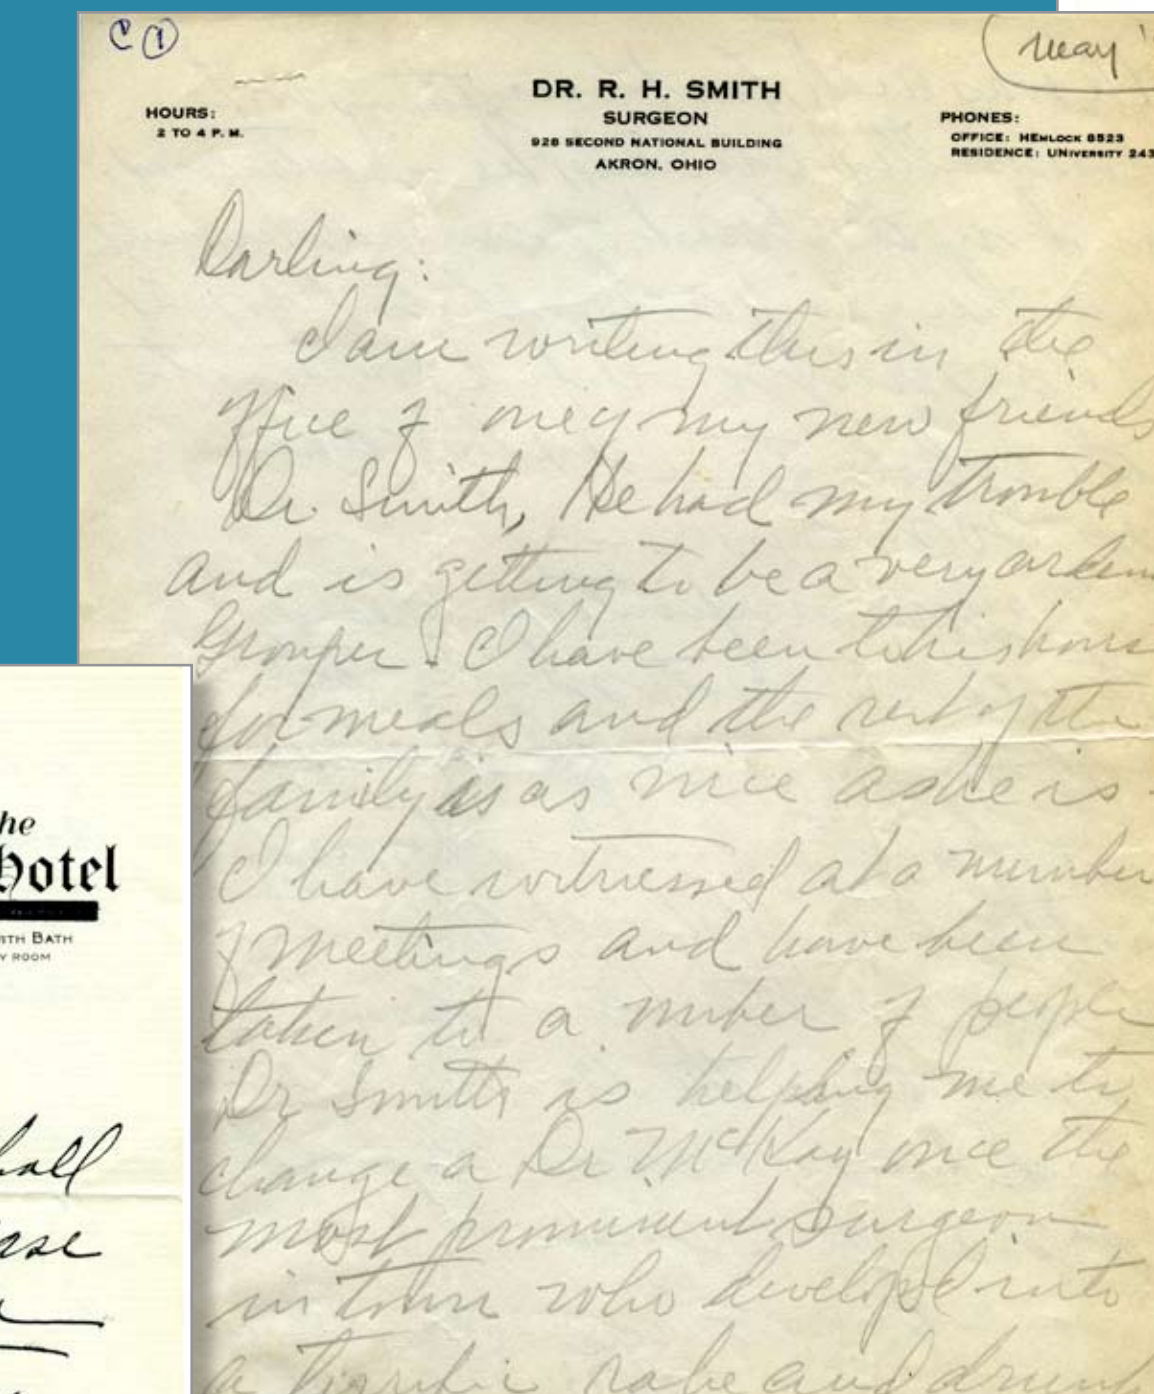 C 1
May
DR. R. H. SMITH
SURGEON
928 SECOND NATIONAL BUILDING
AKRON, OHIO
HOURS:
2 TO 4 P. M.
PHONES:
OFFICE: HEMLOCK 8523
RESIDENCE: UNIVERSITY 243
Darling:
I am writing this in the
office of one of my new friends
Dr. Smith, He had my trouble
and is getting to be a very arden
Grouper. I have been to his hous
for meals and the rest of the
family is as nice as he is.
I have witnessed at a number
of meetings and have been
taken to a number of people
Dr Smith is helping me to
change a Dr McKay once the
most prominent surgeon
in town who developed into
a terrific rake and drunk
he
Hotel
ITH BATH
Y ROOM